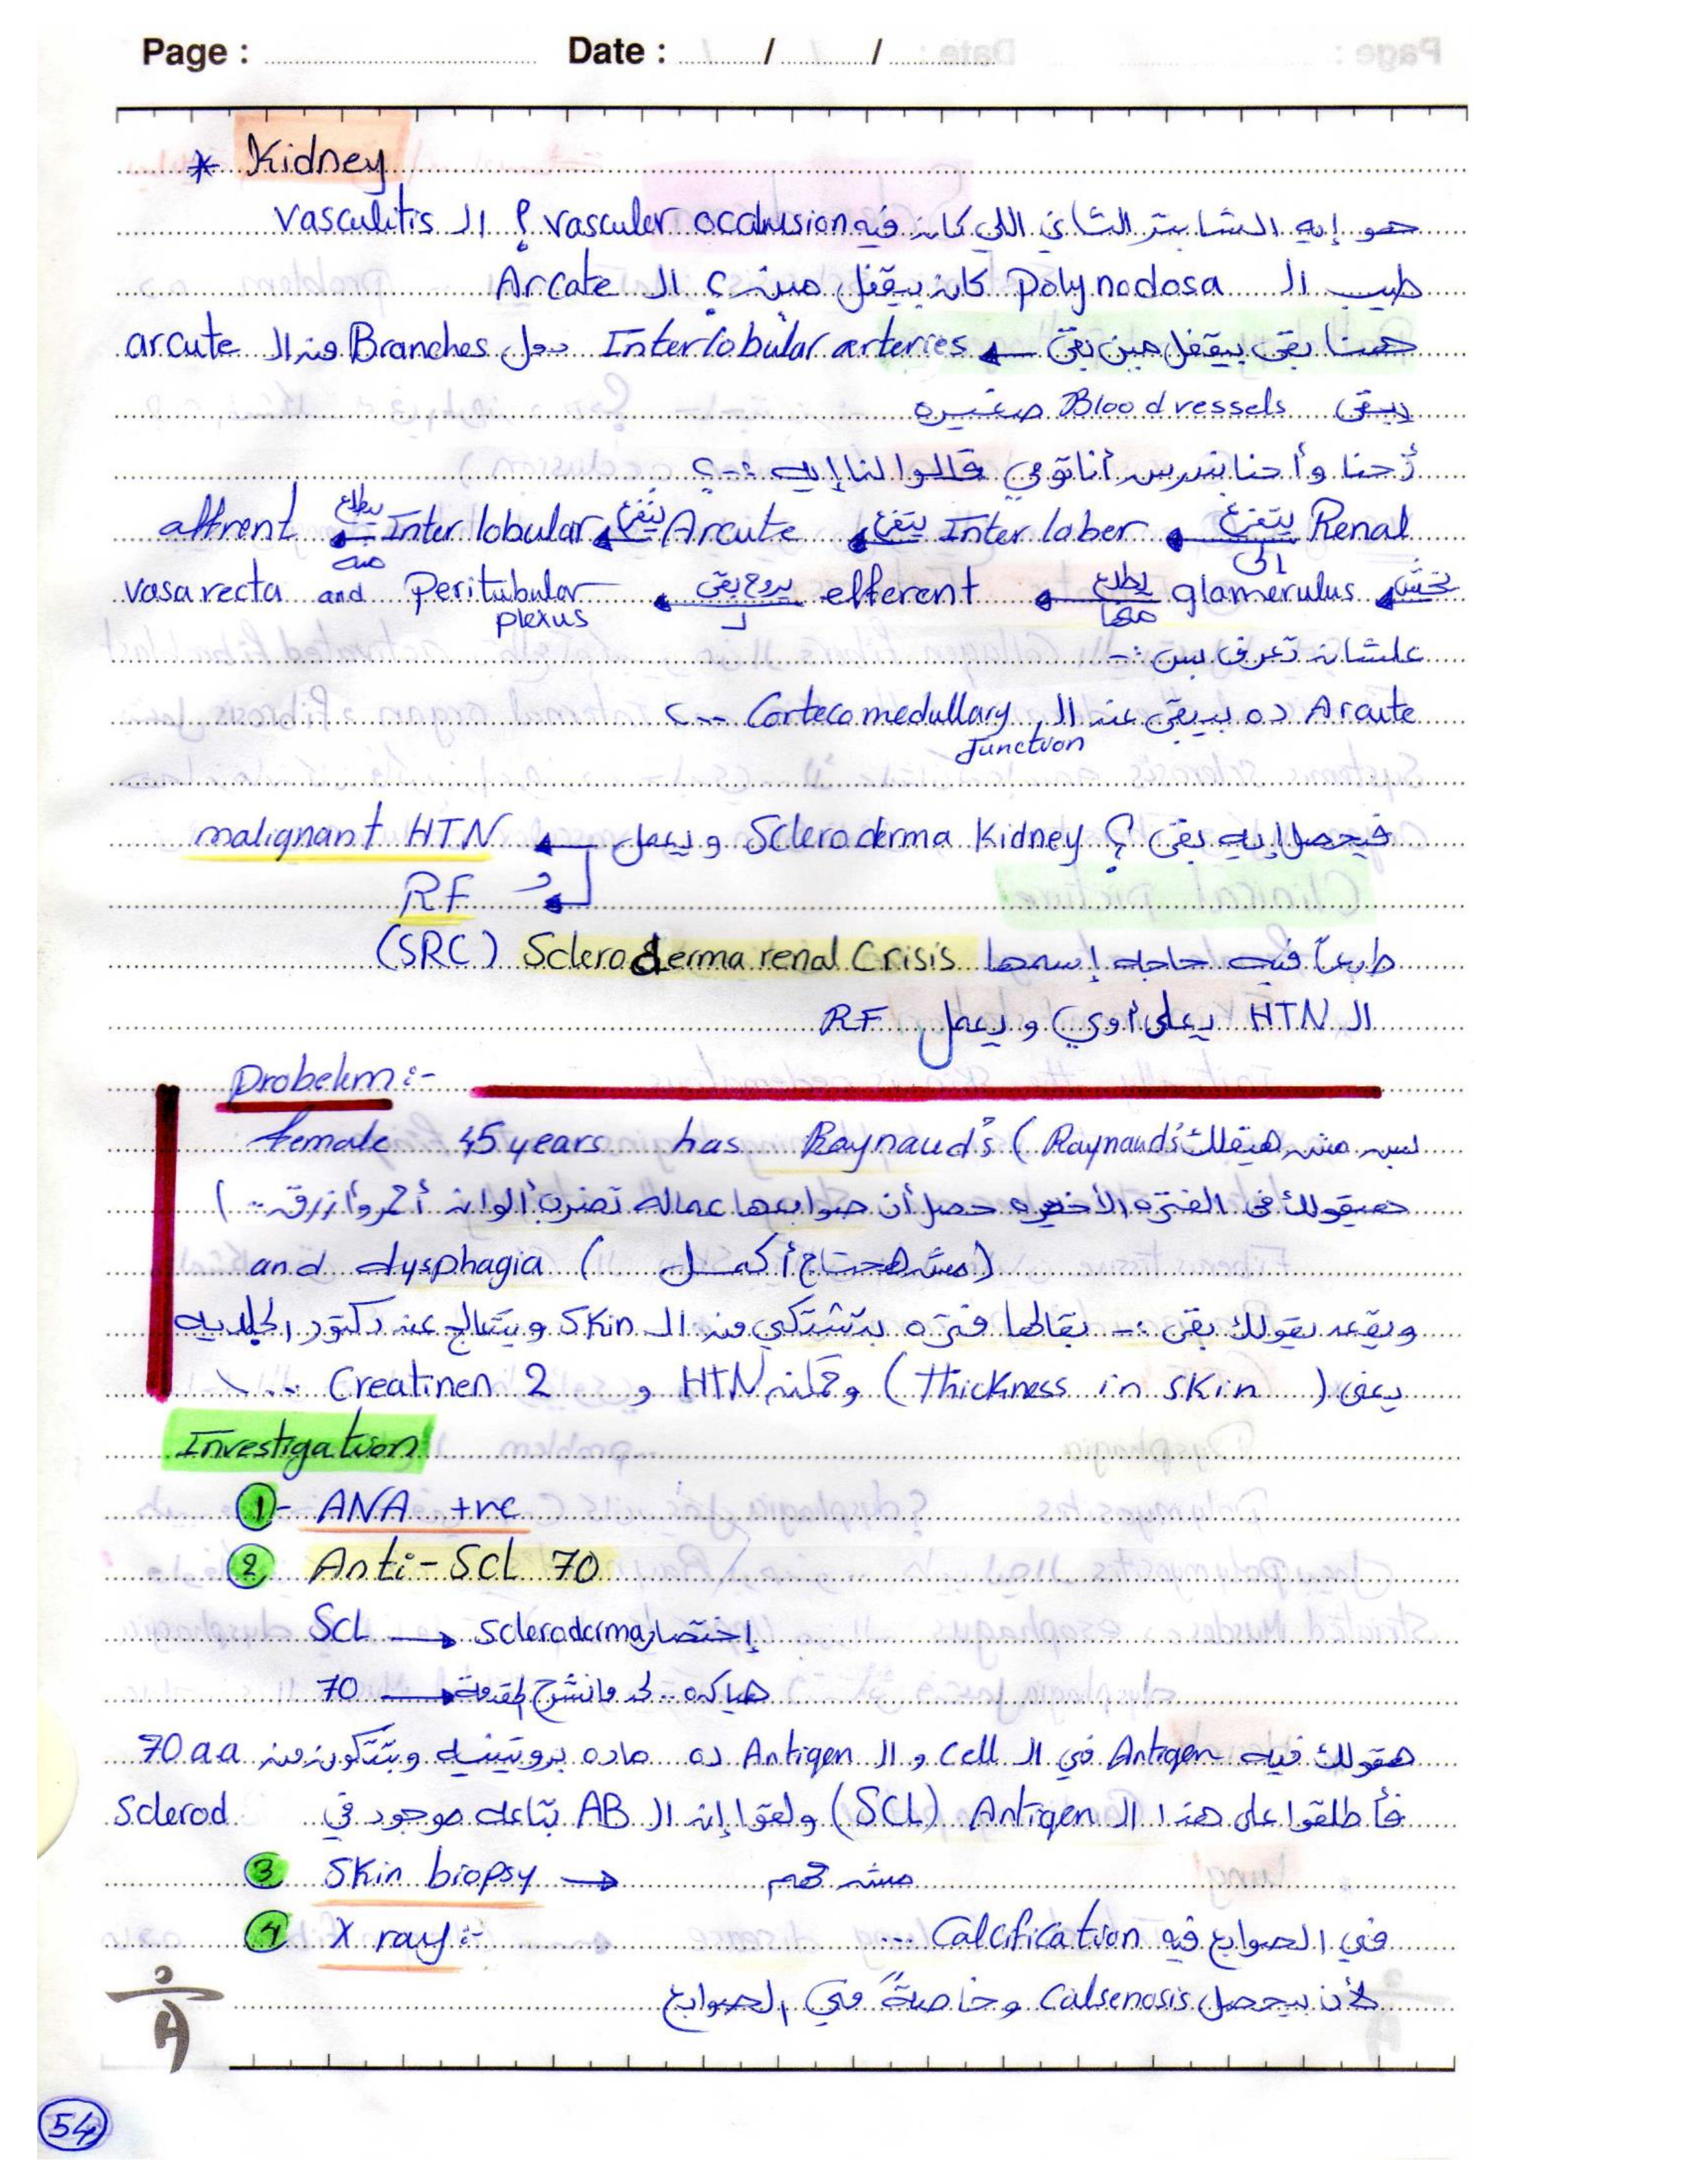 Page : Date : / /
* Kidney
هو إيه الشابتر التاني اللي كان فيه vasculer occulusion ؟ الـ vasculitis
طيب الـ Polynodosa كان بيقفل مين ؟ الـ Arcate
هنا بقى بيقفل مين بقى ← Interlobular arteries دول Branches من الـ arcute
يبقى Blood vessels صغيره
أحنا وأحنا بندرس أناتومي قالوا لنا إيه :-؟
Renal يتفرع الى ← Inter lober يتفرع ← Arcute يتفرع ← Inter lobular يطلع منه ← affrent
تخش ← glomerulus يطلع منها ← efferent يروح بقى لـ ← Peritubular plexus and vasa recta
علشان تعرف بس :-
Arcute ده بيبقى عند الـ Corteco medullary Junction
فيحصل إيه بقى ؟ Scleroderma Kidney ويعمل ← malignant HTN
و RF
طبعاً فيه حاجه إسمها Scleroderma renal Crisis (SRC)
الـ HTN يعلى أوي ويعمل RF
Probelem :-
female 45 years has Raynaud's ( Raynaud's بس مش هيقلك
هيقولك في الفترة الأخيره حصل أن صوابعها عماله تضرب ألوان أحمر وأزرق .. )
and dysphagia ( مش محتاج أكمل )
ويقعد يقولك بقى :- بقالها فتره بتشتكي من الـ Skin وبتتعالج عند دكتور الجلديه
يعني ( thickness in skin ) وكمان HTN و Creatinen 2 ...
Investigation
1- ANA +ve
2 Anti-SCL 70
SCL → Scleroderma إختصار
70 → هيا كده .. لحد ما نشرح المقدمة
هقولك فيه Antigen في الـ Cell و الـ Antigen ده ماده بروتينيه وبتتكون من 70 aa
فأطلقوا على هذا الـ Antigen (SCL) ولقوا إن الـ AB بتاعه موجود في Sclerod
3 Skin biopsy → مش مهم
4 X ray :- في الصوابع فيه Calcification ...
لأن بيحصل Calsenosis وخاصةً في الصوابع
54